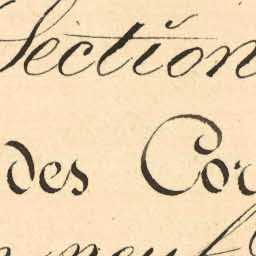 Section
des Cor
neuf